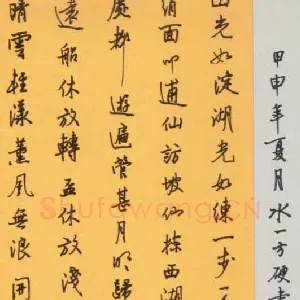 甲申年夏月水一方硬書
山光如淀湖光如練一步一
綃面叩逋仙訪坡仙拣西湖
處都遊遍管甚月明歸
遠船休放轉盃休放淺
晴雲輕漾薰風無浪開
Shufawang.CN